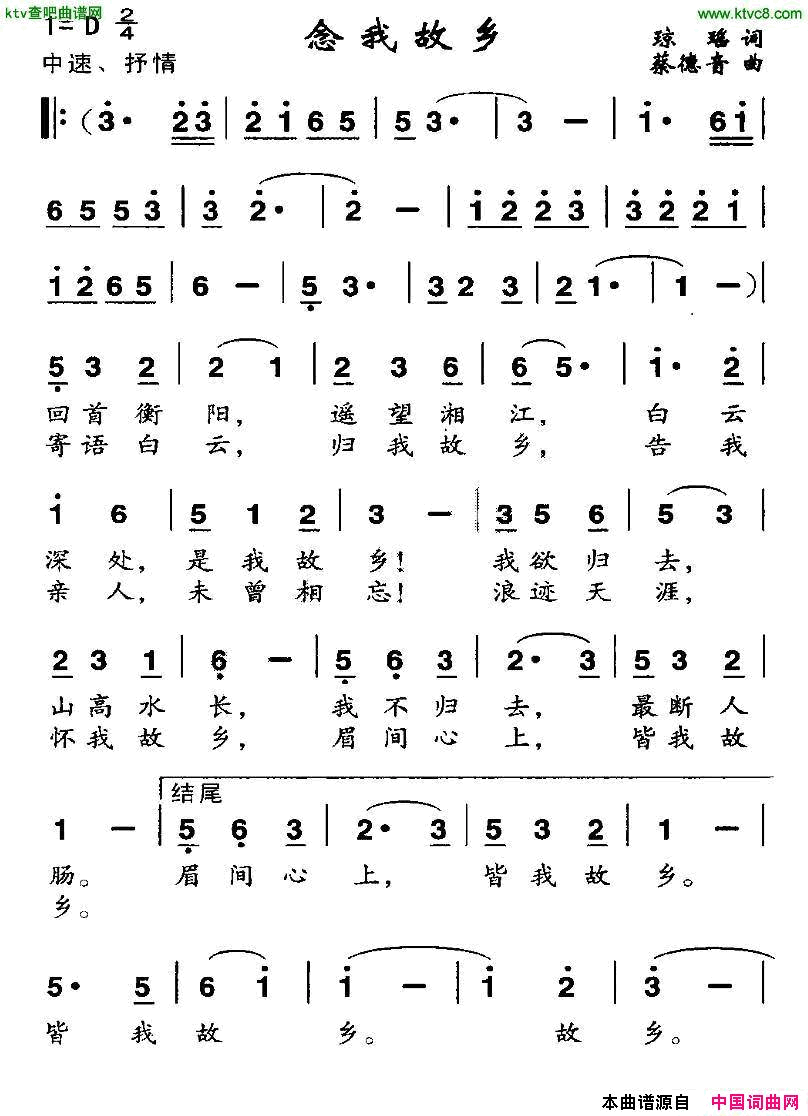 ktv查吧曲谱网 www.ktvc8.com
1= D 2/4 念我故乡 琼 瑶 词
中速、抒情 蔡德音 曲
‖: ( 3̇· 2̇3̇ | 2̇ 1̇ 6 5 | 5 3· | 3 – | 1̇· 61̇ |
6 5 5 3̇ | 3̇ 2̇· | 2̇ – | 1̇ 2̇ 2̇ 3̇ | 3̇ 2̇ 2̇ 1̇ |
1̇ 2̇ 6 5 | 6 – | 5̣ 3· | 3 2 3 | 2 1· | 1 – ) |
5̣ 3 2 | 2 1 | 2 3 6 | 6 5· | 1̇· 2̇ |
回首衡 阳, 遥望湘 江, 白 云
寄语白 云, 归我故 乡, 告 我
1̇ 6 | 5 1 2 | 3 – | 3 5 6 | 5 3 |
深 处, 是我故 乡! 我欲归 去,
亲 人, 未曾相 忘! 浪迹天 涯,
2 3 1 | 6̣ – | 5̣ 6̣ 3 | 2· 3 | 5 3 2 |
山高水 长, 我不归 去, 最断人
怀我故 乡, 眉间心 上, 皆我故
结尾
1 – | 5̣ 6̣ 3 | 2· 3 | 5 3 2 | 1 – |
肠。 眉间心 上, 皆我故 乡。
乡。
5· 5 | 6 1̇ | 1̇ – | 1̇ 2̇ | 3̇ – |
皆 我 故 乡。 故 乡。
本曲谱源自 中国词曲网